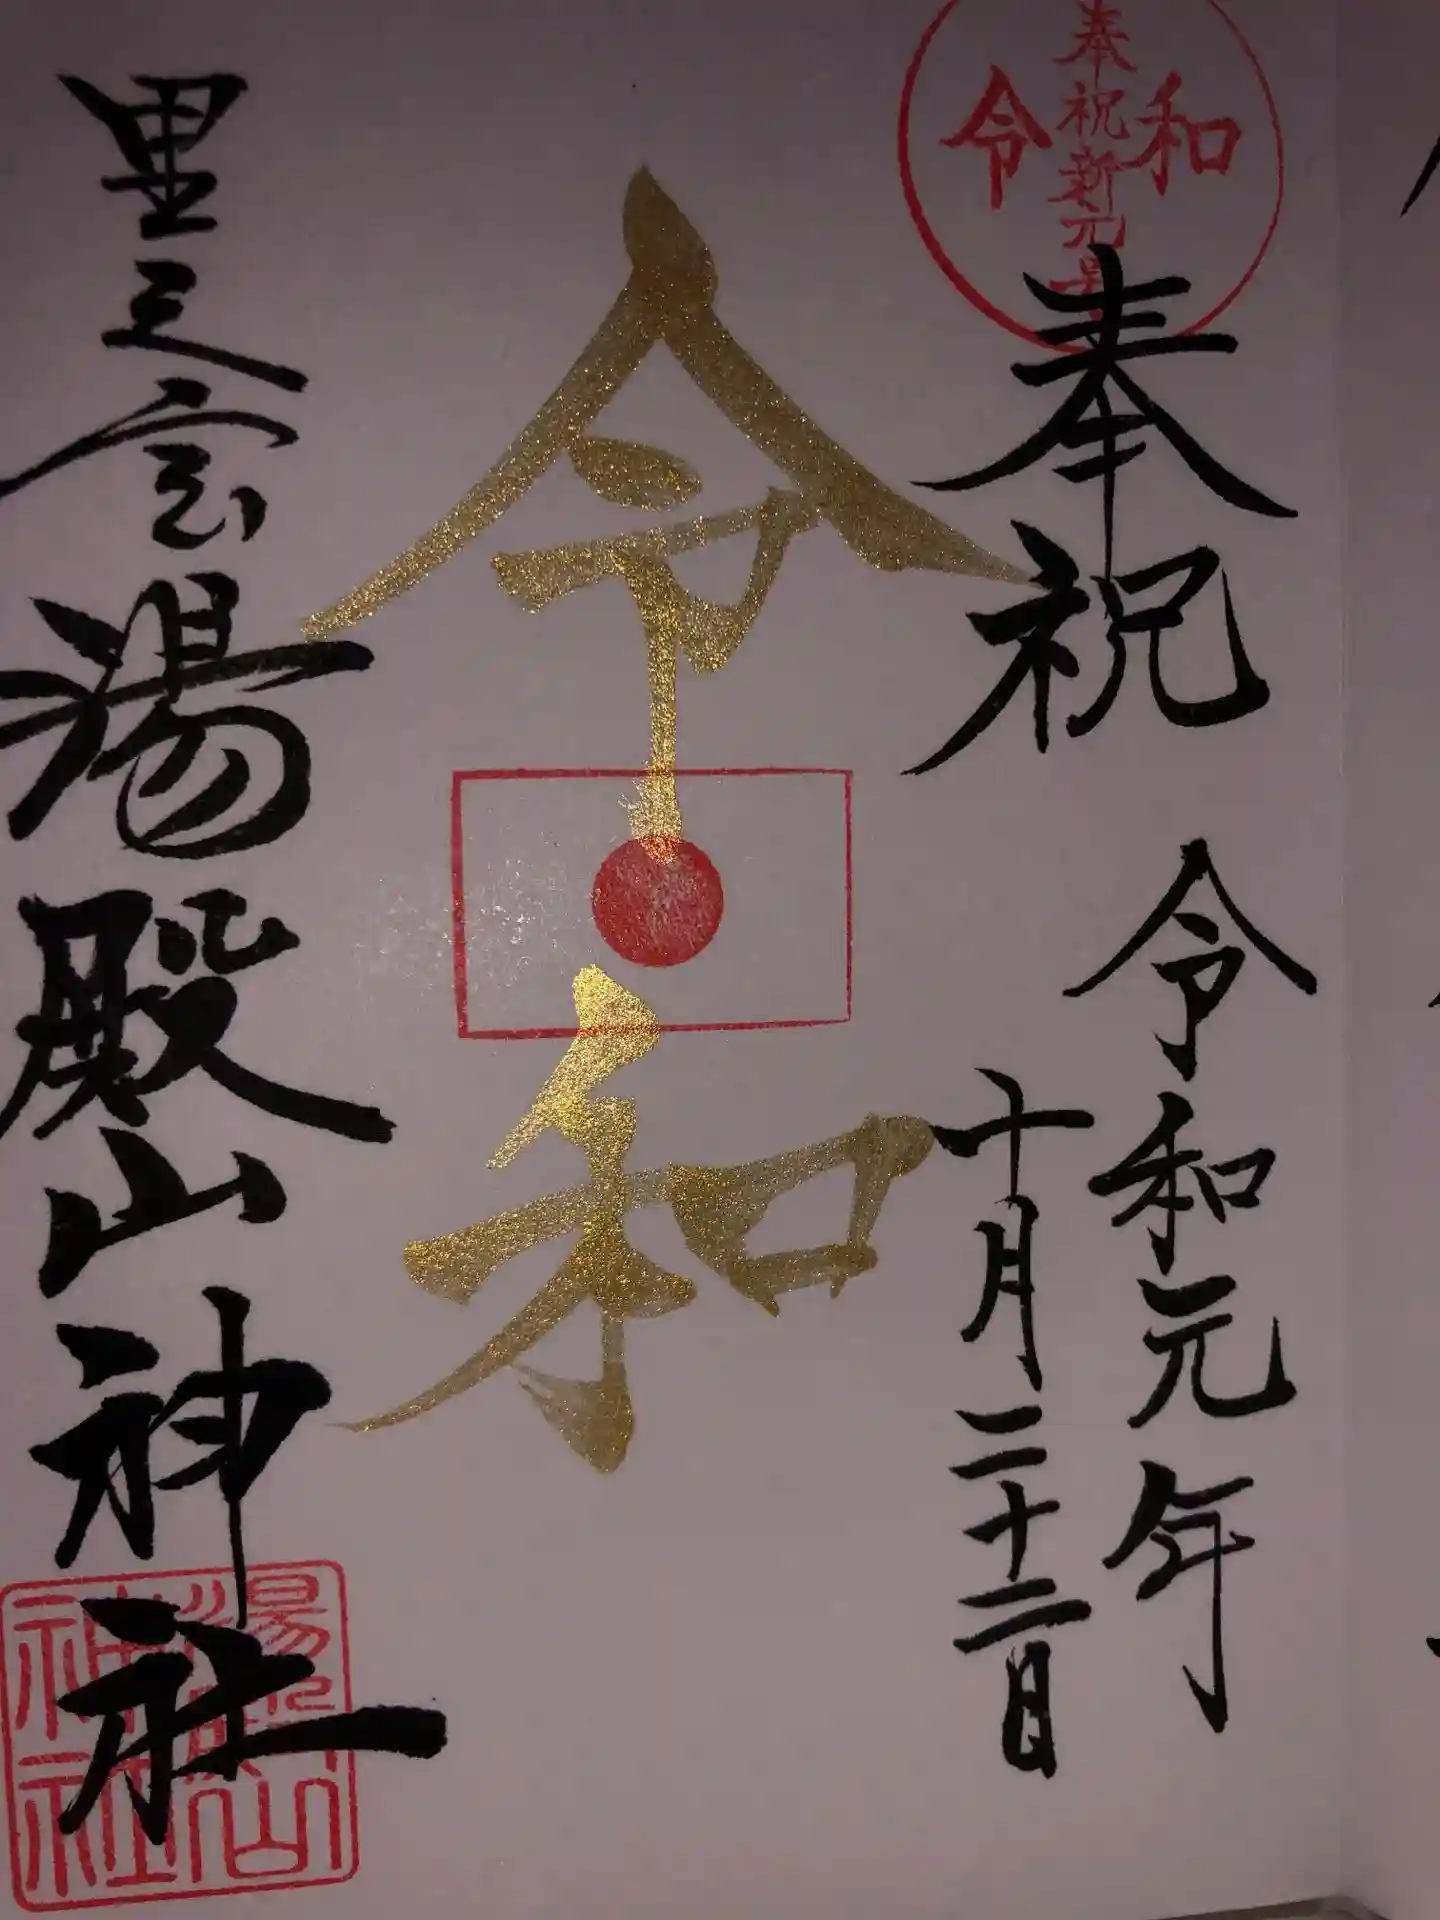 奉祝新元号
令和
奉祝
令和元年
十月二十二日
令和
里之宮
湯殿山神社
湯殿山
神社